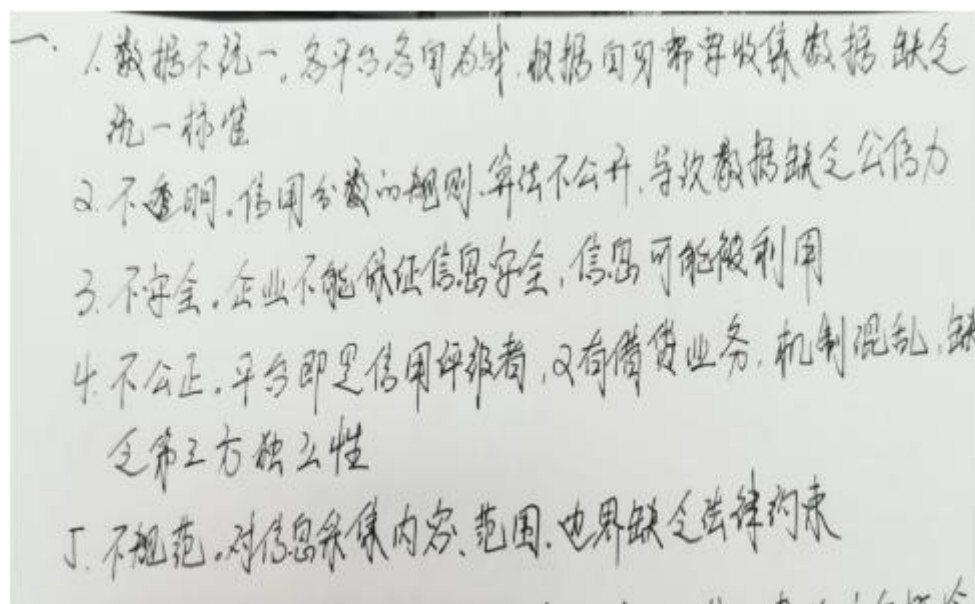 一. 1. 数据不统一。各平台各自为战,根据自身需要收集数据 缺乏
统一标准
2. 不透明。信用分数的规则、算法不公开,导致数据缺乏公信力
3. 不安全。企业不能保证信息安全,信息可能被利用
4. 不公正。平台即是信用评级者,又有借贷业务,机制混乱,缺
乏第三方独立性
5. 不规范。对信息采集内容、范围、边界缺乏法律约束